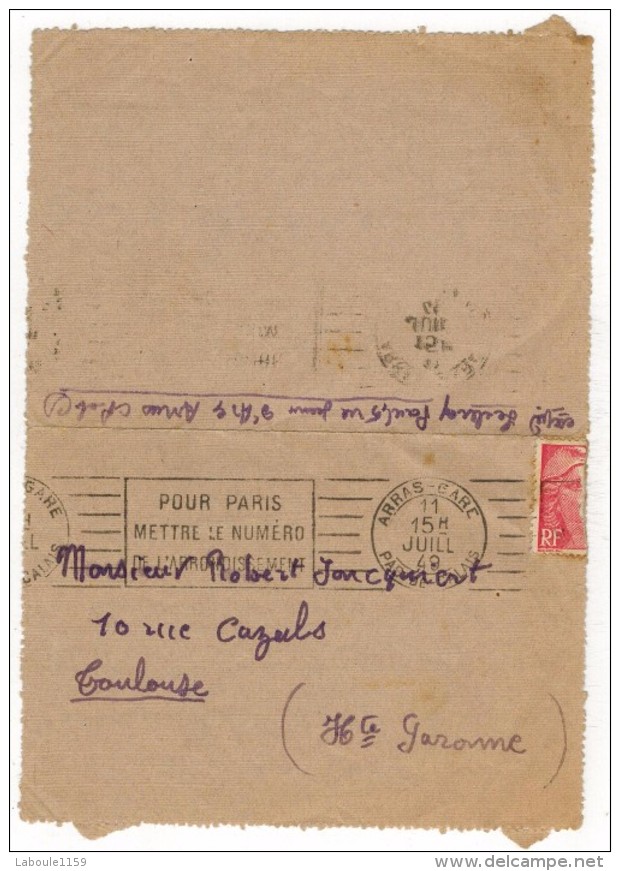 expd. Leclercq Paul, 5 rue Jeanne d'Arc Arras (P de C)
GARE
CALAIS
POUR PARIS
METTRE LE NUMÉRO
DE L'ARRONDISSEMENT
ARRAS-GARE
11
15H
JUILL
49
PAS-DE-CALAIS
RF
Monsieur Robert Jacqument
10 rue Cazals
Toulouse
(Hte Garonne)
Laboule1159
www.delcampe.net